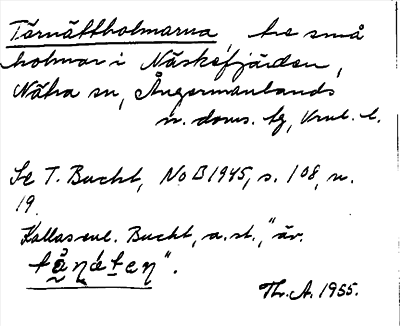 Tärnättholmarna tre små
holmar i Näskefjärden,
Nätra sn, Ångermanlands
n. doms. bg, Vnrl. l.
Se T. Bucht, NoB 1945, s. 108, n.
19.
Kallas enl. Bucht, a. st., "äv.
Th. A. 1955.